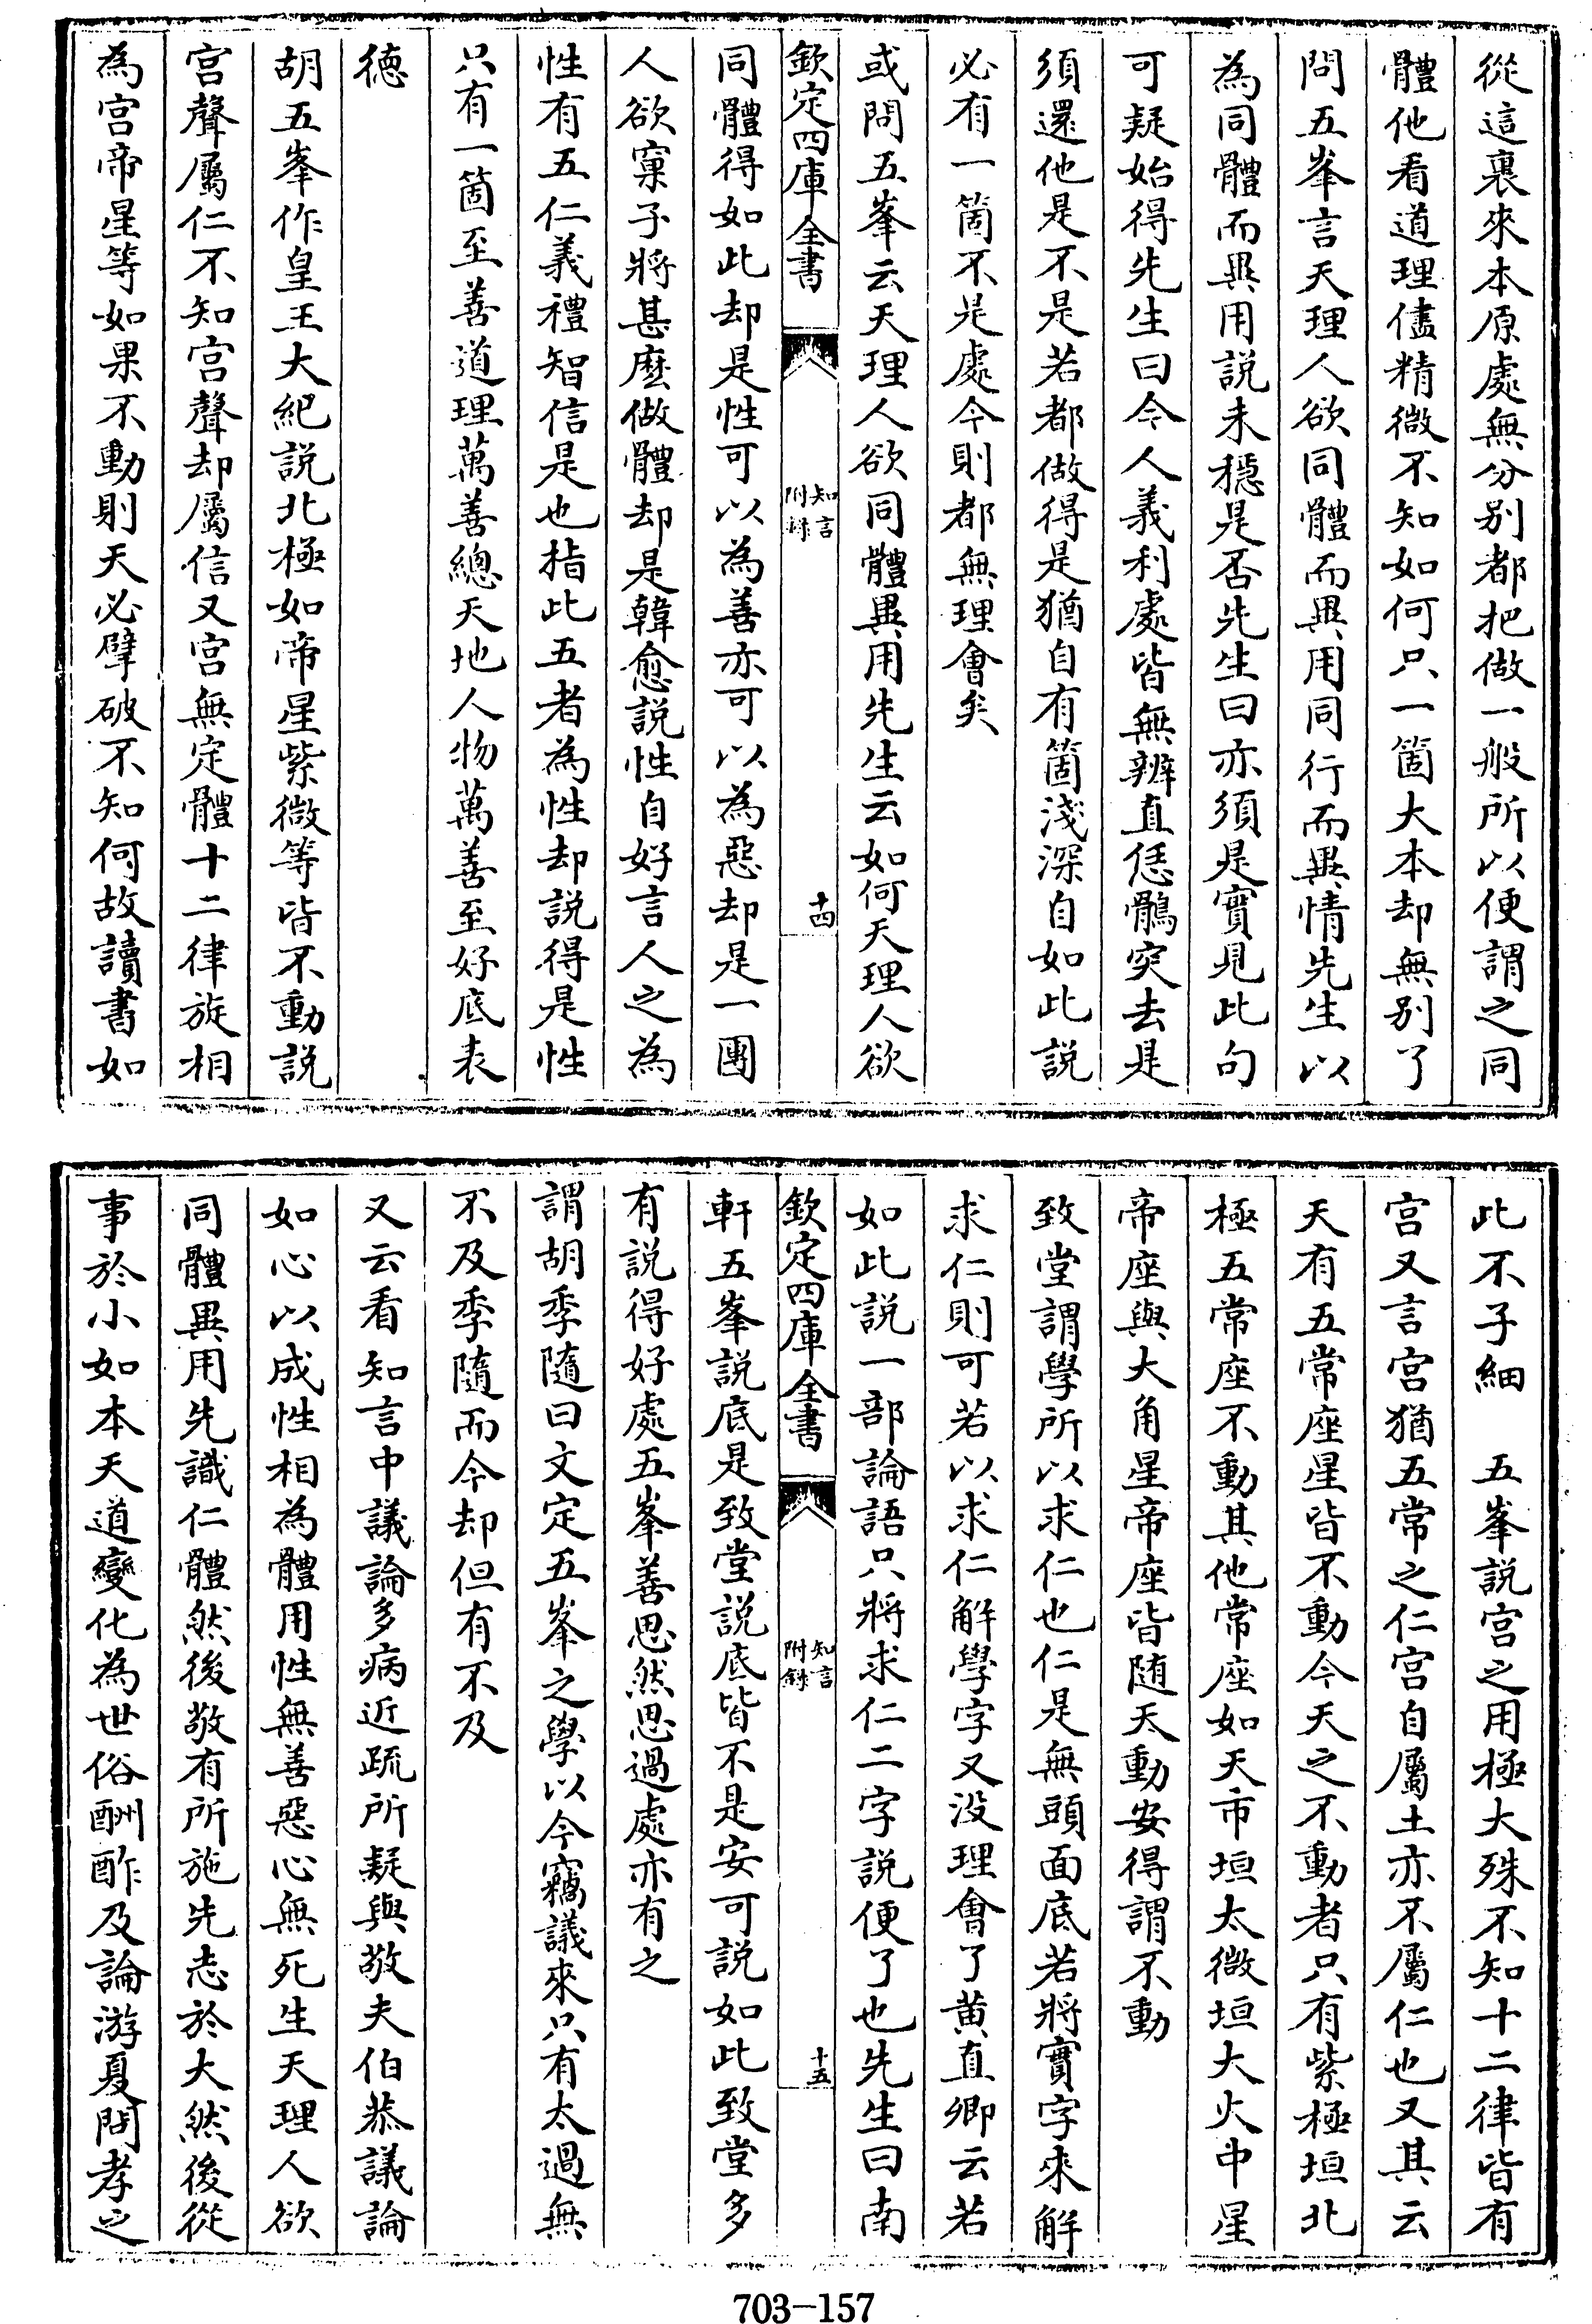 從這裏來本原處無分别都把做一般所以便謂之同
體他看道理儘精微不知如何只一箇大本却無别了
問五峯言天理人欲同體而異用同行而異情先生以
為同體而異用説未穩是否先生曰亦須是實見此句
可疑始得先生曰今人義利處皆無辨直恁鶻突去是
須還他是不是若都做得是猶自有箇淺深自如此説
必有一箇不是處今則都無理會矣
或問五峯云天理人欲同體異用先生云如何天理人欲
欽定四庫全書
知言附錄
十四
同體得如此却是性可以為善亦可以為惡却是一團
人欲窠子將甚麼做體却是韓愈説性自好言人之為
性有五仁義禮智信是也指此五者為性却説得是性
只有一箇至善道理萬善總天地人物萬善至好底表
德
胡五峯作皇王大紀説北極如帝星紫微等皆不動説
宫聲屬仁不知宫聲却屬信又宫無定體十二律旋相
為宫帝星等如果不動則天必擘破不知何故讀書如
此不子細　五峯説宫之用極大殊不知十二律皆有
宫又言宫猶五常之仁宫自屬土亦不屬仁也又其云
天有五常座星皆不動今天之不動者只有紫極垣北
極五常座不動其他常座如天市垣太微垣大火中星
帝座與大角星帝座皆随天動安得謂不動
致堂謂學所以求仁也仁是無頭面底若將實字來解
求仁則可若以求仁解學字又没理會了黄直卿云若
如此説一部論語只將求仁二字説便了也先生曰南
欽定四庫全書
知言附錄
十五
軒五峯説底是致堂説底皆不是安可説如此致堂多
有説得好處五峯善思然思過處亦有之
謂胡季隨曰文定五峯之學以今竊議來只有太過無
不及季隨而今却但有不及
又云看知言中議論多病近疏所疑與敬夫伯恭議論
如心以成性相為體用性無善惡心無死生天理人欲
同體異用先識仁體然後敬有所施先志於大然後從
事於小如本天道變化為世俗酬酢及論游夏問孝之
703-157